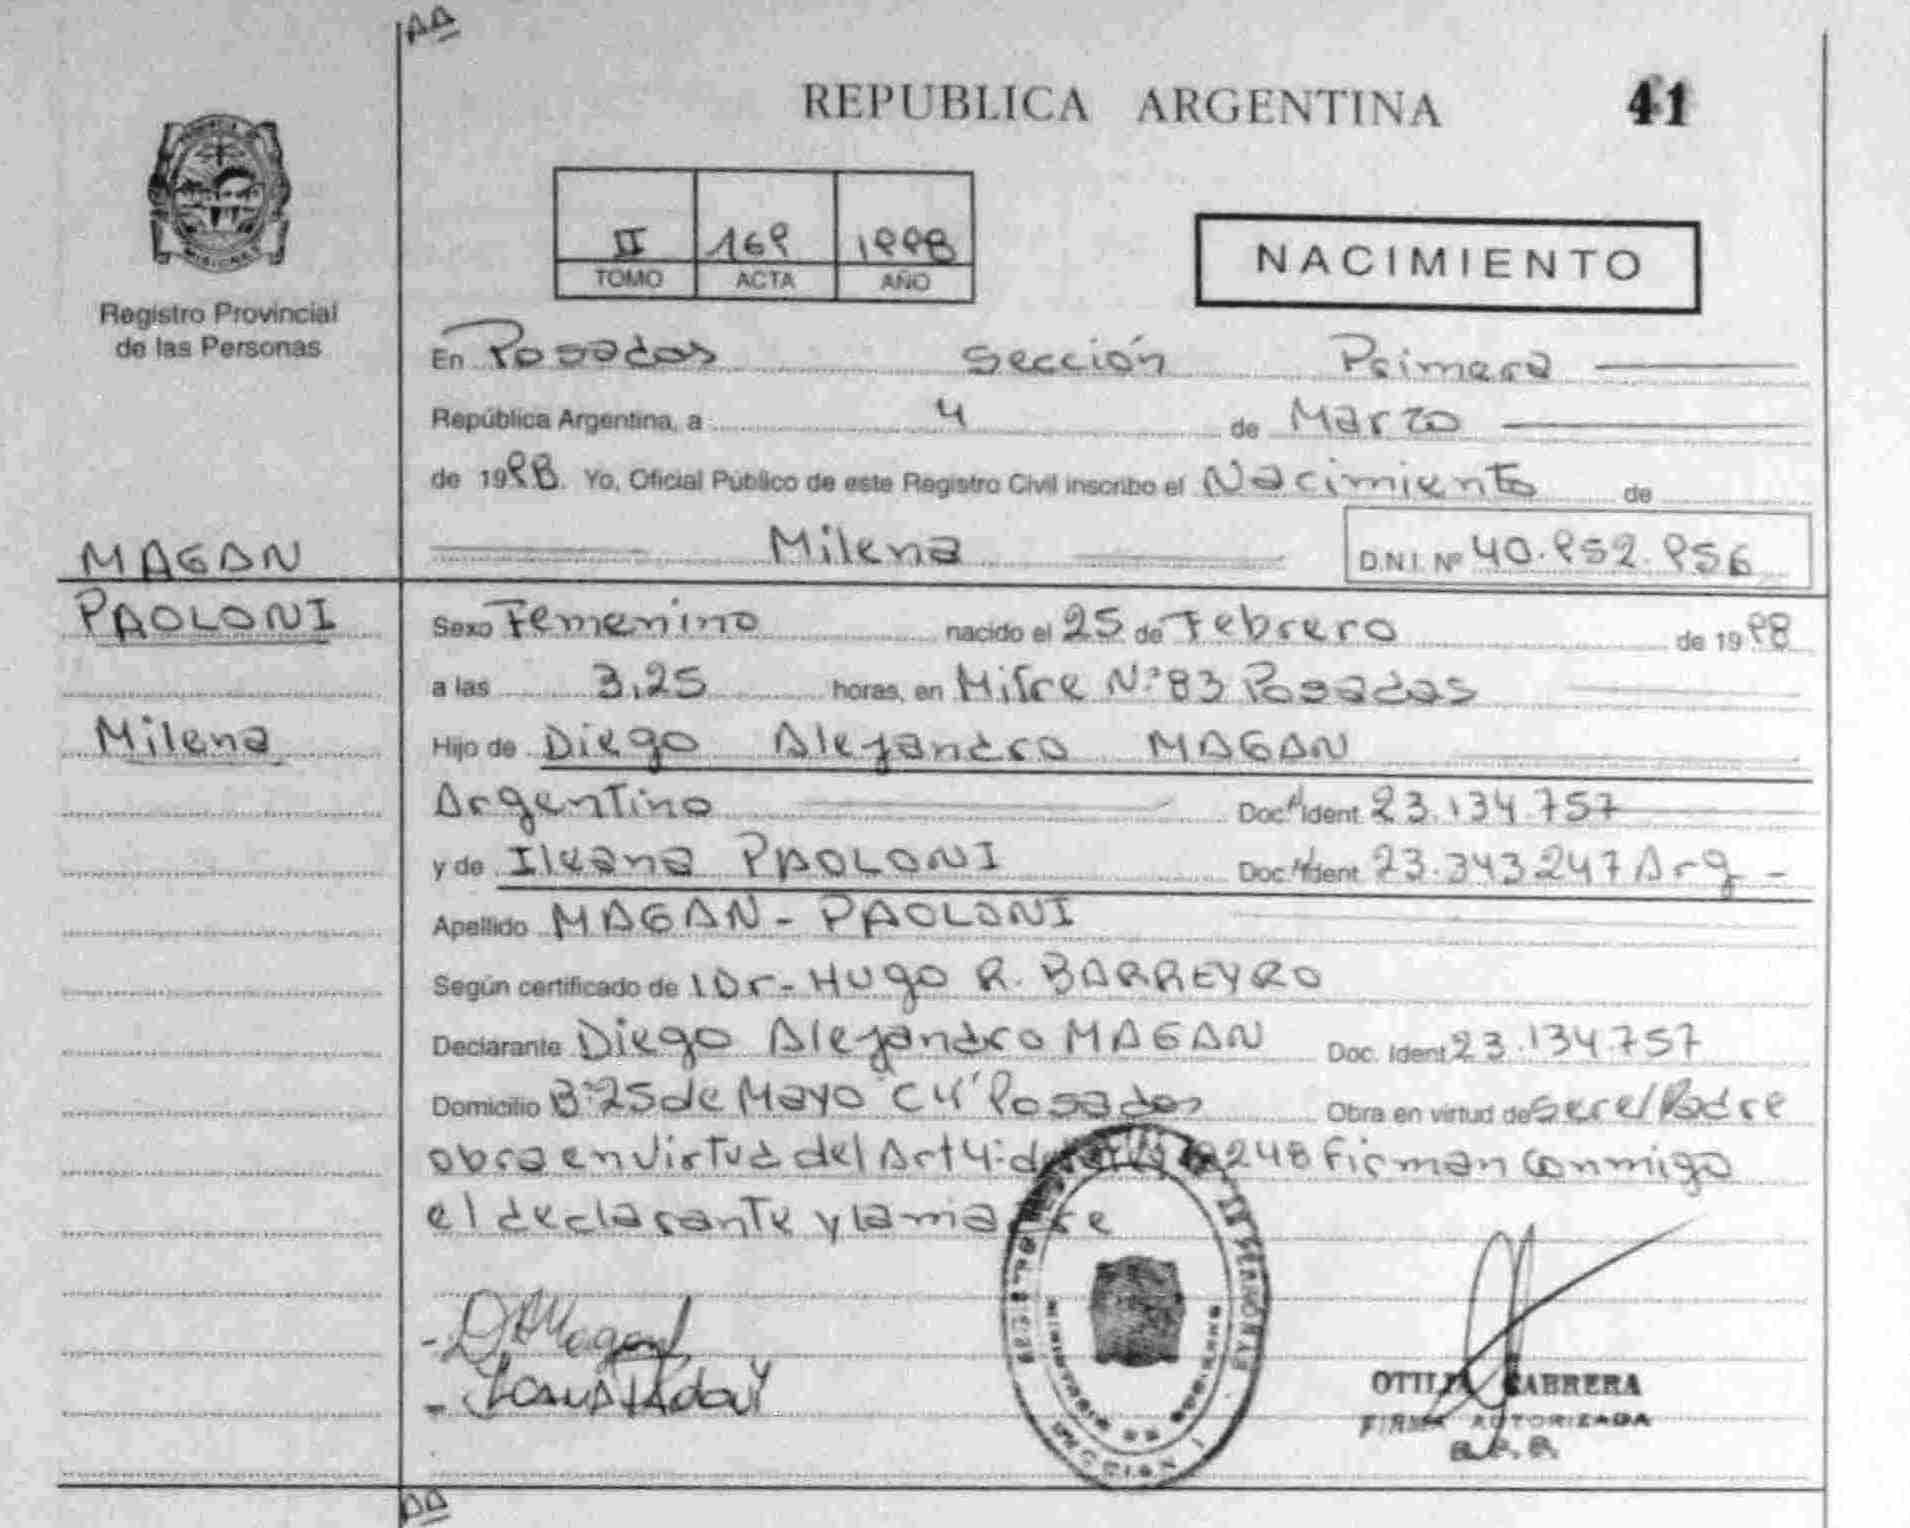 AA
REPUBLICA ARGENTINA 41
MISIONES
Registro Provincial
de las Personas
II 169 1998
TOMO ACTA AÑO
NACIMIENTO
En Posadas Sección Primera
República Argentina, a 4 de Marzo
de 1998. Yo, Oficial Público de este Registro Civil inscribo el Nacimiento de
Milena D.N.I. Nº 40.952.956
MAGAN
PAOLONI
Milena
Sexo Femenino nacido el 25 de Febrero de 1998
a las 3,25 horas, en Mitre Nº 83 Posadas
Hijo de Diego Alejandro MAGAN
Argentino Doc. Ident. 23.134.757
y de Ileana PAOLONI Doc. Ident. 23.343.247 Arg -
Apellido MAGAN - PAOLONI
Según certificado de Dr - Hugo R. BARREYRO
Declarante Diego Alejandro MAGAN Doc. Ident. 23.134.757
Domicilio Bº 25 de Mayo C 4 Posadas Obra en virtud de ser el Padre
obra en virtud del Art 4: 248 Firman conmigo
el declarante y la madre
SECCION 1
OTTILIA CABRERA
FIRMA AUTORIZADA
AA